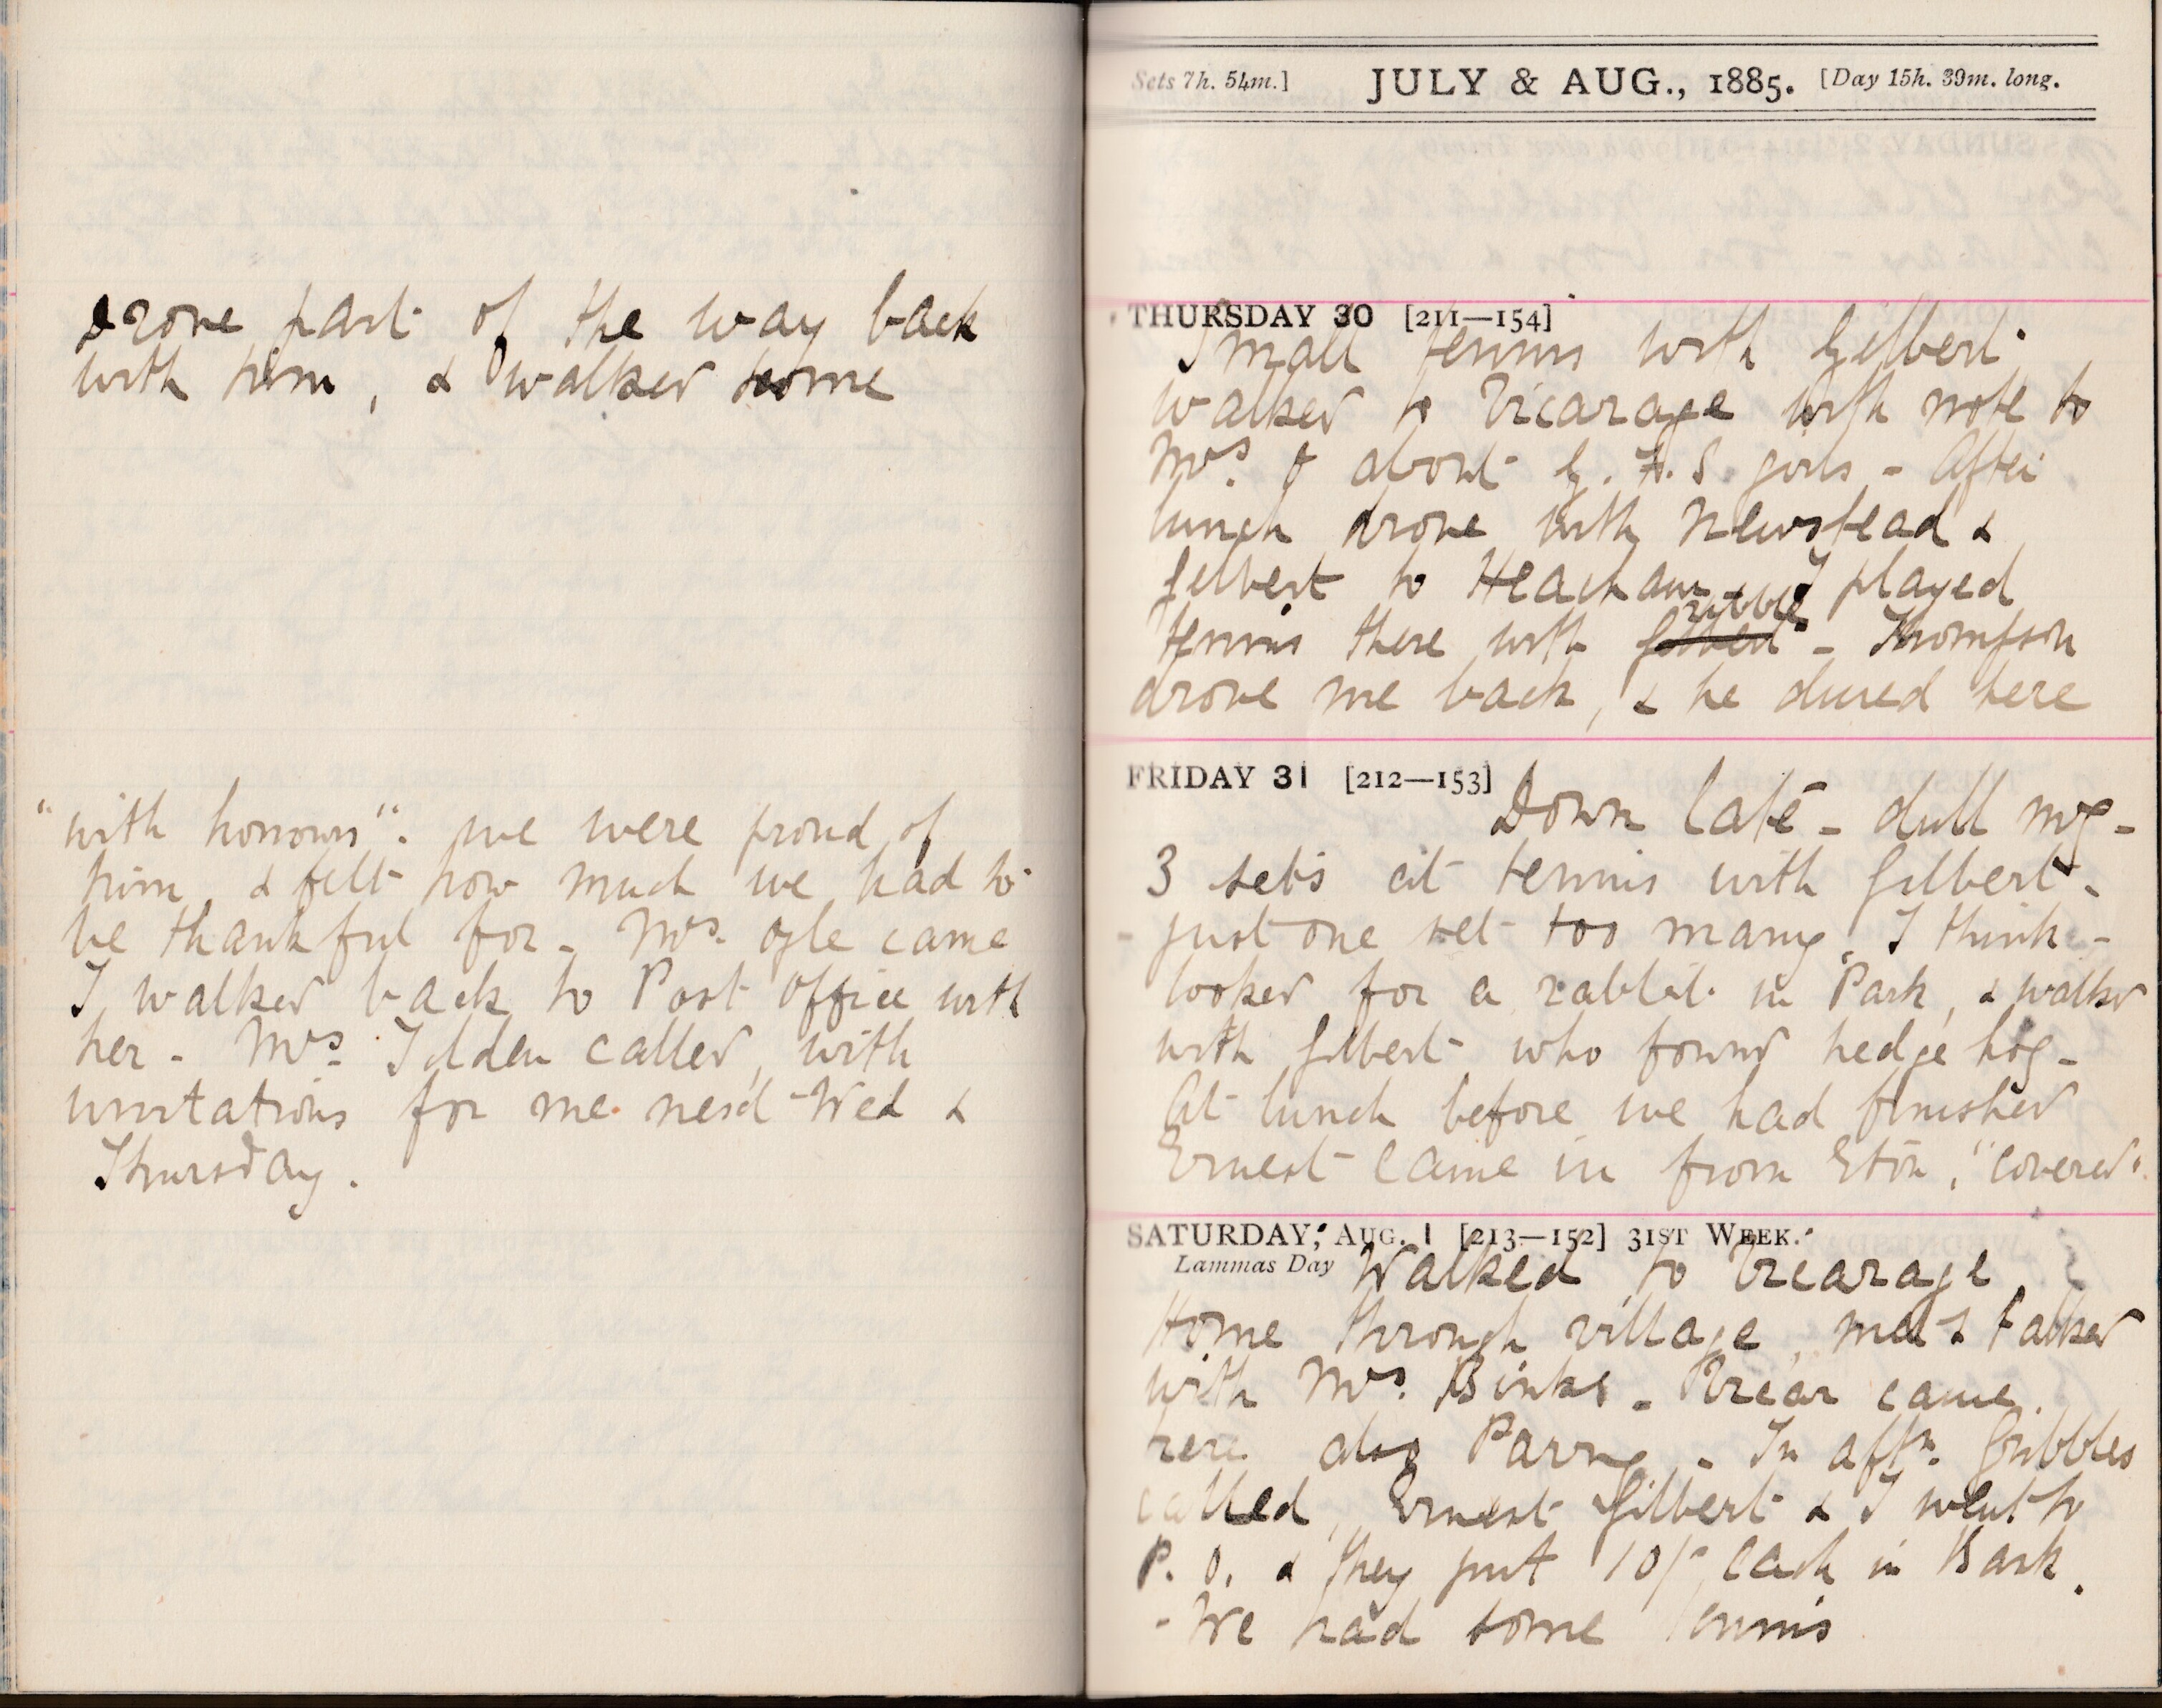 drove part of the way back
with him, & walked home
"with honours". we were proud of
him, & felt how much we had to
be thankful for - Mrs. Ogle came
I walked back to Post Office with
her - Mrs. Tilden called, with
invitations for me next Wed &
Thursday.
Sets 7h. 54m.] JULY & AUG., 1885. [Day 15h. 39m. long.
THURSDAY 30 [211—154]
Small tennis with Gilbert
walked to Vicarage with note to
Mrs. O about G. F. S. girls - After
lunch drove with Newstead &
Gilbert to Heacham - I played
ribble
tennis there with Gilbert - Thompson
drove me back, & he dined here
FRIDAY 31 [212—153]
Down late - dull mg -
3 sets at tennis with Gilbert -
just one set too many, I think -
looked for a rabbit in Park, & walked
with Gilbert who found hedge hog -
At lunch before we had finished
Ernest came in from Eton, "covered"
SATURDAY, AUG. 1 [213—152] 31ST WEEK.
Lammas Day Walked to Vicarage
Home through village, met & talked
with Mrs. Binks - Vicar came
here also - In aftn. Gribbles
called, Ernest Gilbert & I went to
P. O. & they put 10/- each in Bank.
- We had some tennis